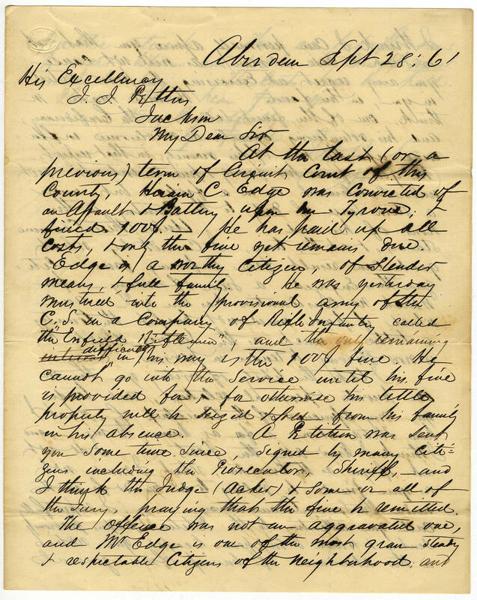 Aberdeen Sept 28: 61
His Excellency
J. J. Pettus
Jackson
My Dear Sir
At the last (or a
previous) term of Circuit Court of this
County, Hiram C. Edge was convicted of
an Assault & Battery upon Mr Tyrone; &
fined 100$. He has paid up all
cost, & only the fine yet remains due.
Edge is a worthy citizen, of slender
means, & full family. He was yesterday
mustered into the provisional army of the
C. S. in a Company of Rifle Infantry called
the "Enfield Riflemen", and the only remaining
difficulty in his way is the 100$ fine. He
cannot go into the Service until his fine
is provided for, for otherwise his little
property will be seized & sold from his family
in his absence. A Petition was sent
you some time since, signed by many Citi-
zens including the Prosecutor, Sheriff, and
I think the Judge (Acker) & some or all of
the Jury, praying that the fine be remitted.
The offence was not an aggravated one,
and Mr Edge is one of the most steady
& respectable Citizens of the Neighborhood, and